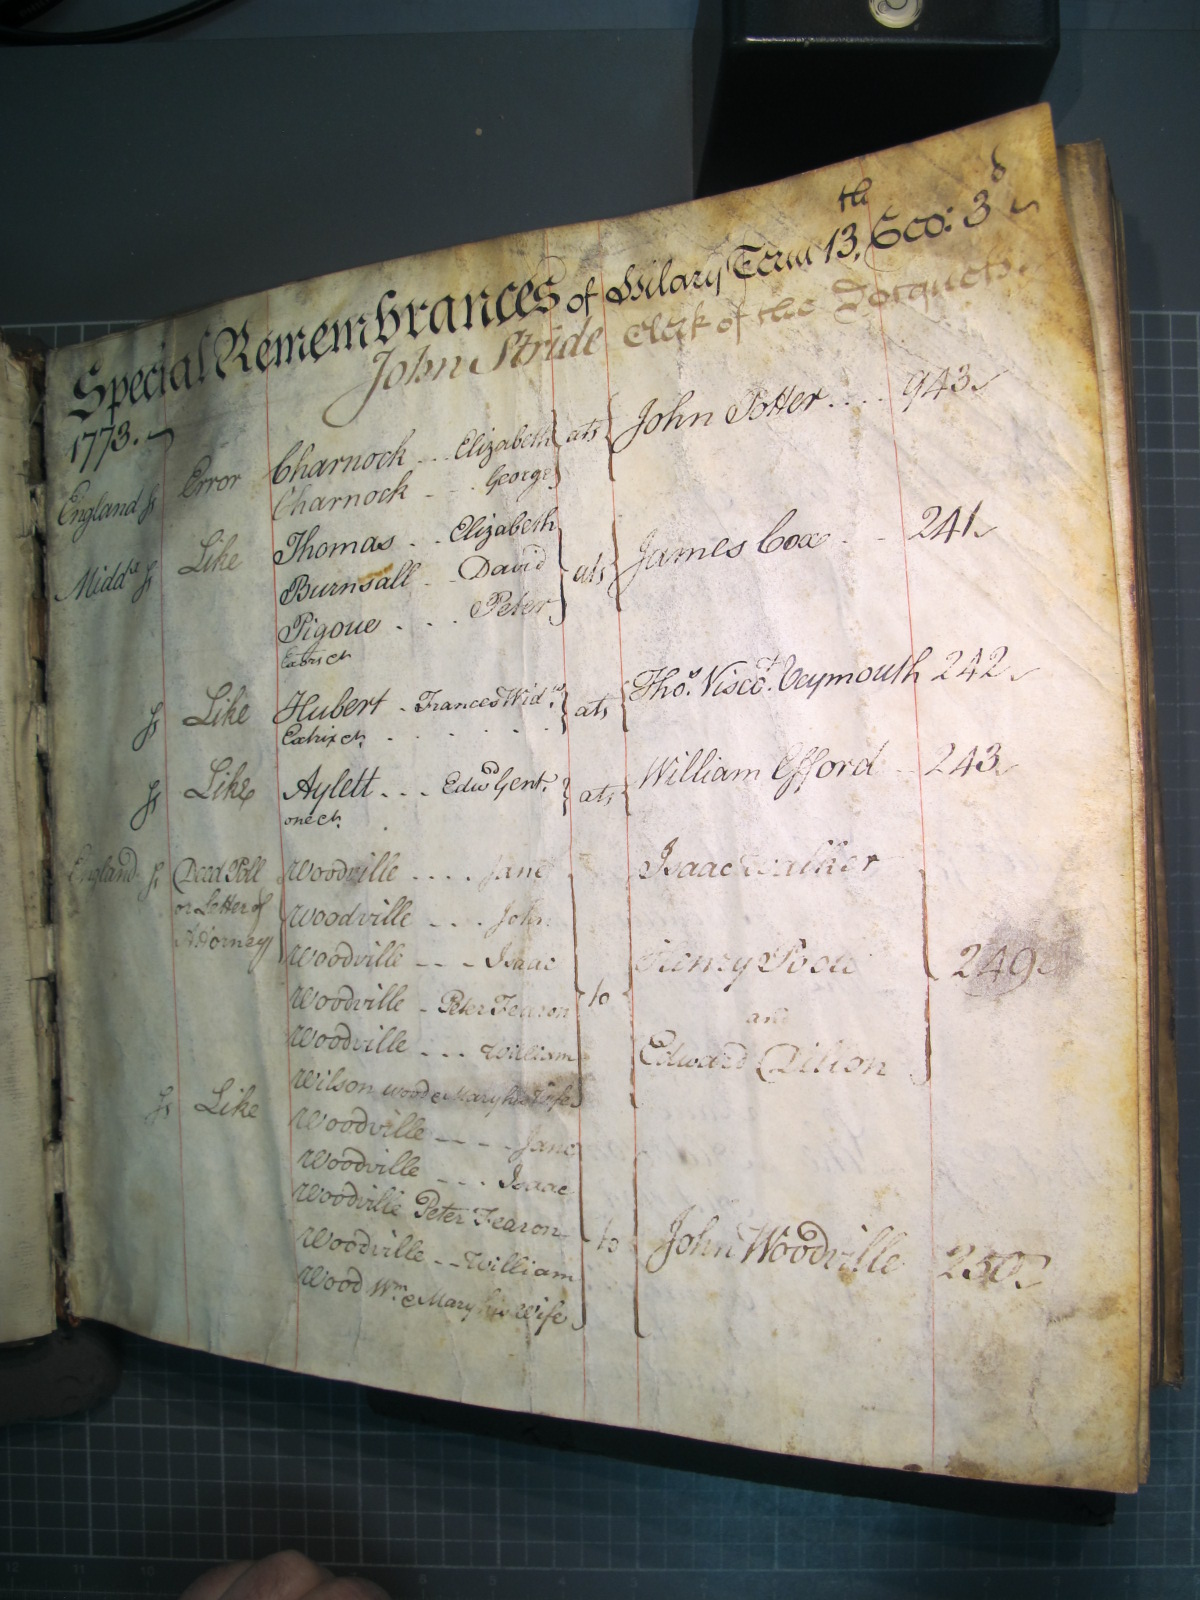 Special Remembrances of Hilary Term 13.th Geo: 3d
1773. John Stride Clerk of the Docquets.
England ss Error Charnock .. Elizabeth } ats { John Potter .... 943
Charnock - - . George
Midds ss Like Thomas . . Elizabeth
Burnsall . . David } ats { James Cox . . 241
Pigoue . . . Peter
Exrs &c
ss Like Hubert . Frances Widw. } ats { Thos. Visct. Weymouth 242
Extrix &c . . . . . .
ss Like Aylett . . . Edwd Gent. } ats { William Efford . 243
one &c
England ss Deed Poll Woodville .... Jane Isaac Walker
or Letter of Woodville - - . . John
Attorney Woodville - - - Isaac Henry 249
Woodville - Peter Fearon } to { and
Woodville . . . William Edward Dilion
Wilson Wood & Mary his Wife
ss Like Woodville - - - - Jane
Woodville - . . Isaac
Woodville Peter Fearon } to { John Woodville 250
Woodville - - William
Wood Wm & Mary his Wife